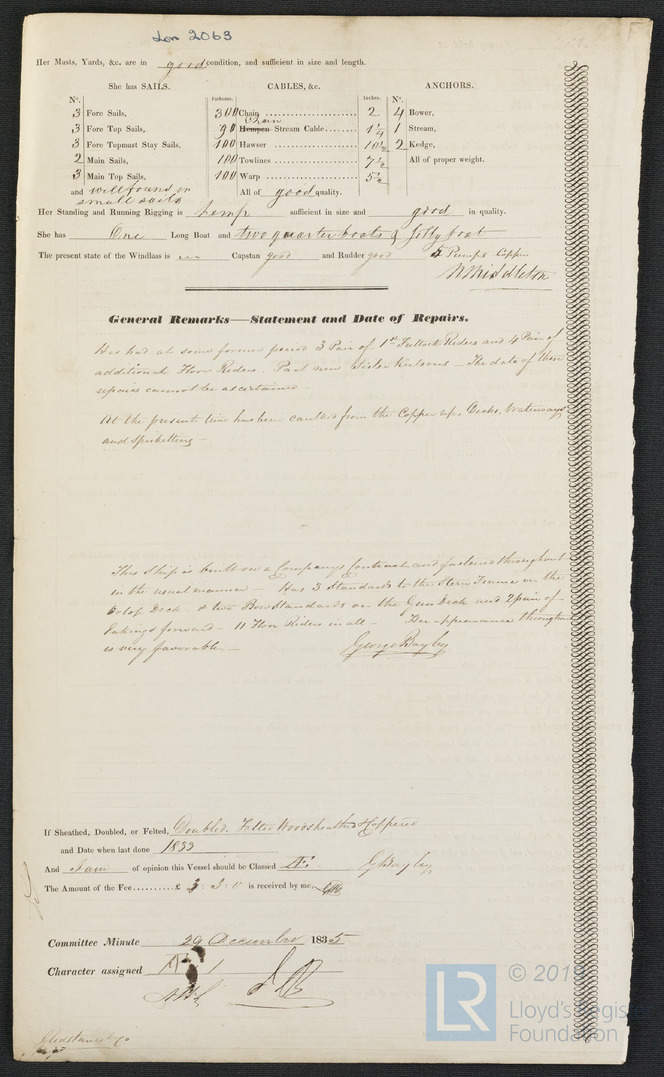 Lon 2063
Her Masts, Yards, &c. are in good condition, and sufficient in size and length.
She has SAILS.
CABLES, &c.
ANCHORS.
N°.
Fathoms.
Inches.
N°.
3 Fore Sails,
300 Chain 2
4 Bower,
3 Fore Top Sails,
90 Hempen Chain Stream Cable 1¼
1 Stream,
3 Fore Topmast Stay Sails,
100 Hawser 10½
2 Kedge,
2 Main Sails,
100 Towlines 7½
All of proper weight.
3 Main Top Sails,
100 Warp 5½
and well found in small sails
All of good quality.
Her Standing and Running Rigging is hemp sufficient in size and good in quality.
She has One Long Boat and two quarter boats & Jolly boat
The present state of the Windlass is Capstan good and Rudder good Pumps Copper
N Middleton
General Remarks—Statement and Date of Repairs.
Has had at some former period 3 Pair of 1st Futtock Riders and 4 Pair of
additional Floor Riders. Part new Sister Keelsons — The date of these
repairs cannot be ascertained
At the present time has been caulked from the Copper up, Decks, Waterways
and Spirketting —
This Ship is built on a Companys Contract and fastened throughout
in the usual manner — Has 3 Standards to the Stern Frame on the
Orlop Deck & two Bow Standards on the Gun Deck and 2 pair of
forward — 11 Floor Riders in all — Her appearance throughout
is very favorable —
George Bayley
If Sheathed, Doubled, or Felted, Doubled. Felted Woodsheathed & Coppered
and Date when last done 1833
And I am of opinion this Vessel should be Classed G Bayley
The Amount of the Fee £ 3 : 3 : 0 is received by me,
Committee Minute 29 December 1835
Character assigned 1
© 2019
LR
Lloyd's Register
Foundation